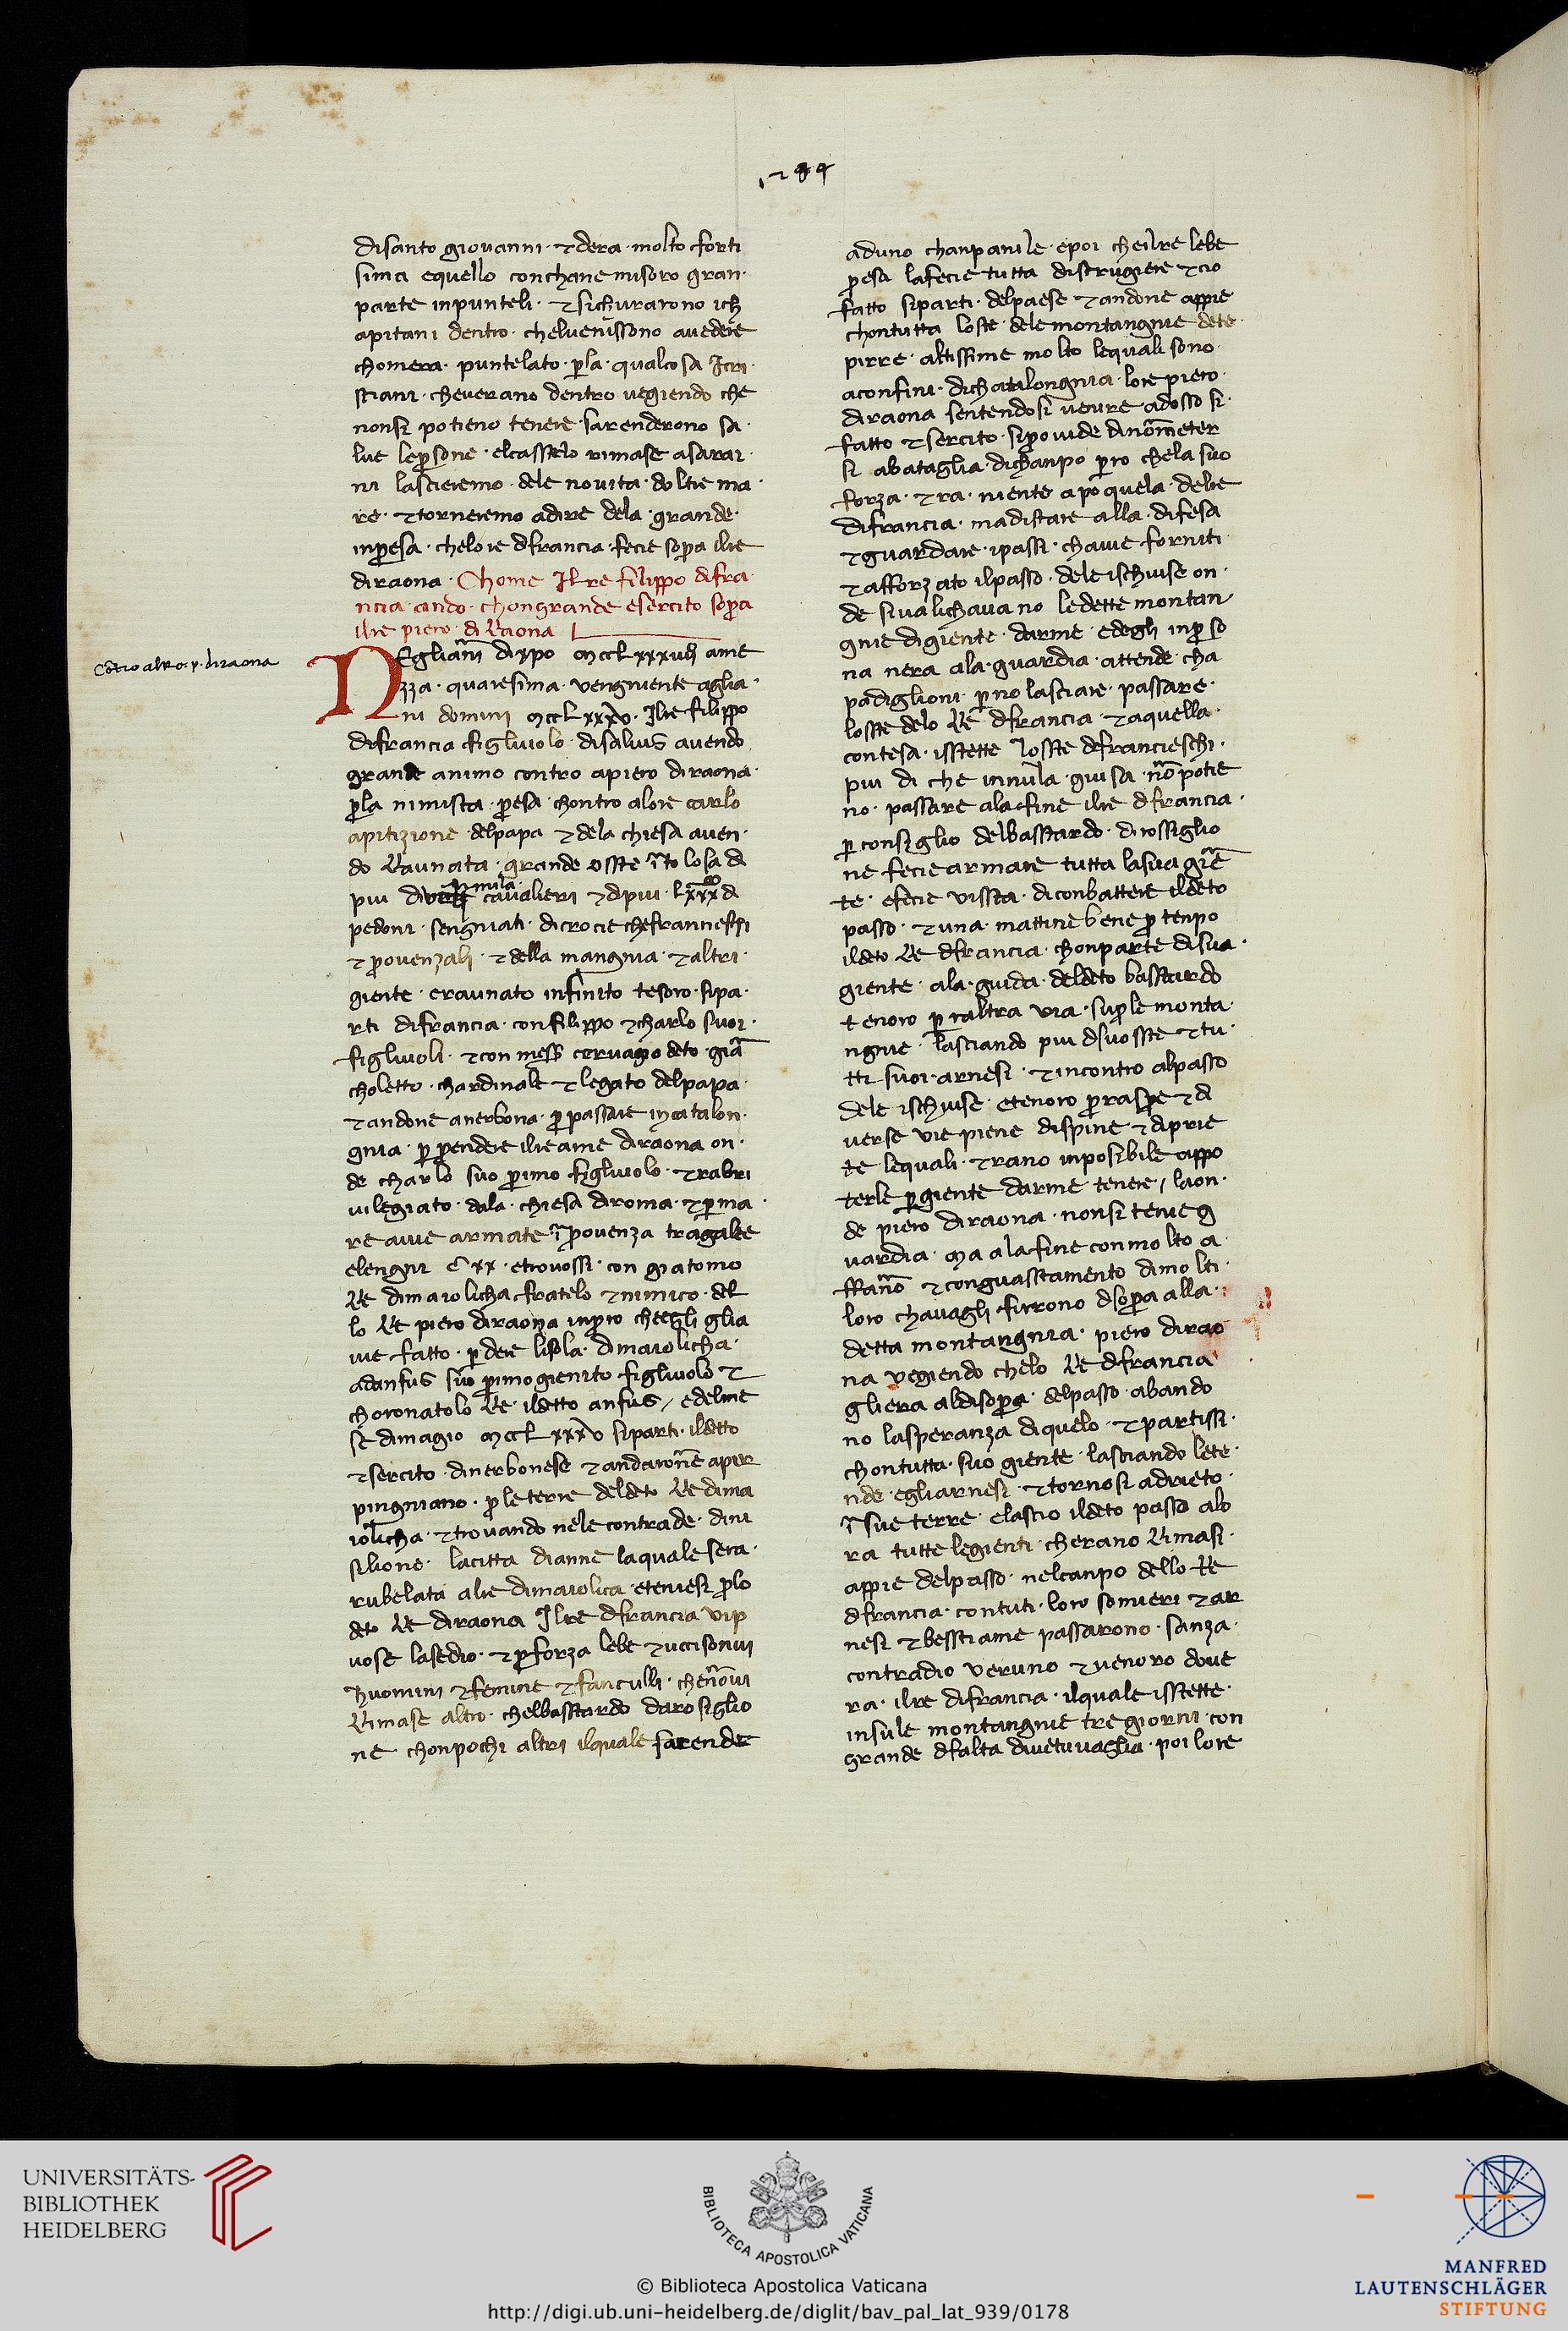 1284
di santo giovanni · et dera · molto forti
sima e quello con chane misoro gran·
parte in punteli · et sichurarono ich
apitani dentro · che venissono a vedere
chomera · puntelato · p̱ la · qual cosa I cri·
stiani · che verano dentro vegiendo che
non si potieno tenere · sarenderono sa·
lue le p̱sone · el casstelo rimase a sarai·
ni lascieremo · dele novita · doltre ma·
re · et torneremo a dire dela · grande·
inp̱esa · che lo re d francia · fecie sop̱a il re
di raona · Chome Il re filippo di fra·
ncia · ando · chon grande esercito sop̱a
il re piero · di Raona
Contro al re · p · di raona
Negli ãni di xp̃o mcclxxxiiij ame
zza · quaresima · vengniente agli a·
ni domini mcclxxxv · Il re filippo
di francia figliuolo · di saluis avendo
grande animo contro a piero di raona·
p̱ la nimista · p̱esa · chontro alo re carlo
a pitizione · del papa et de la chiesa aven·
do Raunata · grande osste ĩ tolosa di
piu di mila cavalieri et di piu · lxxx di
pedoni · sengniati · di crocie che franciesschi
et p̱ovenzali · et della mangnia · et altri·
giente · e raunato infinito tesoro · si pa·
rti di francia · con filippo et charlo suoi·
figliuoli · et con mess cervagio deto · giã
choletto · chardinale et legato del papa·
et andone a nerbona · p̱ passare in catalon·
gnia · p̱ p̱endere il reame di raona on·
de charlo suo p̱imo figliuolo · etra bri
uilegiato · dala · chiesa di roma · et p̱ ma·
re avie armate ĩ p̱ovenza tra galee
e lengni Cxx · e trovossi · con giatomo
Re di maiolicha fratelo et nimico · del
lo Re piero di raona inp̱io che egli glia
vie fatto · p̱dere lisola · di maiolicha·
ad anfus suo p̱imogienito figliuolo et
choronatolo Re · il detto anfus / e del me
se di magio mcclxxxv si parti · il detto
et sercito · di nerbonese et andarõne a per
pingniano · p̱ le terre del deto Re di ma
iolicha · et trovando nele contrade · di ru
silione · la citta di anne la quale sera·
rubelata al re di maiolica · e teniesi p̱ lo
deto Re di raona Il re d francia vi p
uose lasedio · et p̱ forza lebe et uccisonui
huomini et femine et fanculli · che nõ vi
Rimase altro · chel basstardo da rosiglio
ne chon pochi altri il quale sarende
ad uno chanpanile · e poi che il re lebe
p̱esa la fecie tutta distrugiere et cio
fatto si parti · del paese et andone appie
chon tutta loste · dele montangnie dete
pirre · altissime molto le quali sono·
a confini · di chatalongnia · lo re piero·
di raona sentendosi venire adosso si·
fatto et sercito · si p̱ovide di nõ meter
si a bataglia · di chanpo p̱o che la suo
forza · et ra · niente apo quela · delre
di francia · ma di stare alla · difesa
et guardare · i passi · chavie forniti·
et afforzato il passo · dele ischiuse on·
de si valichavano le dette montan·
gnie di giente · darme · e degli in p̱so
na nera ala · guardia · attende · cha
padiglioni · p̱ no lasciare · passare·
losste delo Re d francia · et a quella·
contesa · isstette losste de francieschi·
piu di che in nula · guisa · nõ potie
no · passare ala fine il re d francia·
p̱ consiglio del basstardo · di rossiglio
ne fecie armare tutta la sua giẽ
te · e fecie vissta · di conbattere il deto
passo · et una · mattine bene p̱ tenpo
il deto Re d francia · chon parte di sua·
giente · ala · guida · del deto basstardo
tenoro p̱ raltra via · su p̱ le monta·
ngnie · lasciando piu d suo osste et tu·
tti suoi · arnesi · et incontro al passo
dele ischiuse · e tenoro p̱ raspe et di
verse vie piene di spine · et di prie
te le quali · etrano inposibile appo
terle p̱ giente darme · tenere / laon·
de piero di raona · non si tenie g
uardia · Ma a la fine con molto a·
ffanõ et con guasstamento di molti·
loro chavagli · furono d sop̱a alla·
detta montangnia · piero di rao
na vegiendo che lo Re d francia
gliera al di sop̱a · del passo · abando
no la speranza di quelo · et partissi·
chon tutta · suo giente · lasciando le te·
nde · e gli arnesi · et tornosi adrieto·
ĩ sue terre · e lascio il deto passo alo
ra tutte le gienti · cherano Rimasi·
appie del passo · nel canpo dello Re
d francia · con tuti · loro somieri et ar
nesi et besstiame passarono · sanza·
contradio veruno et venoro dove
ra · il re di francia · il quale isstette·
in sule montangnie tre giorni · con
grande d falta di vetuvaglia · poi lo re
UNIVERSITÄTS-
BIBLIOTHEK
HEIDELBERG
BIBLIOTECA APOSTOLICA VATICANA
© Biblioteca Apostolica Vaticana
http://digi.ub.uni-heidelberg.de/diglit/bav_pal_lat_939/0178
MANFRED
LAUTENSCHLÄGER
STIFTUNG